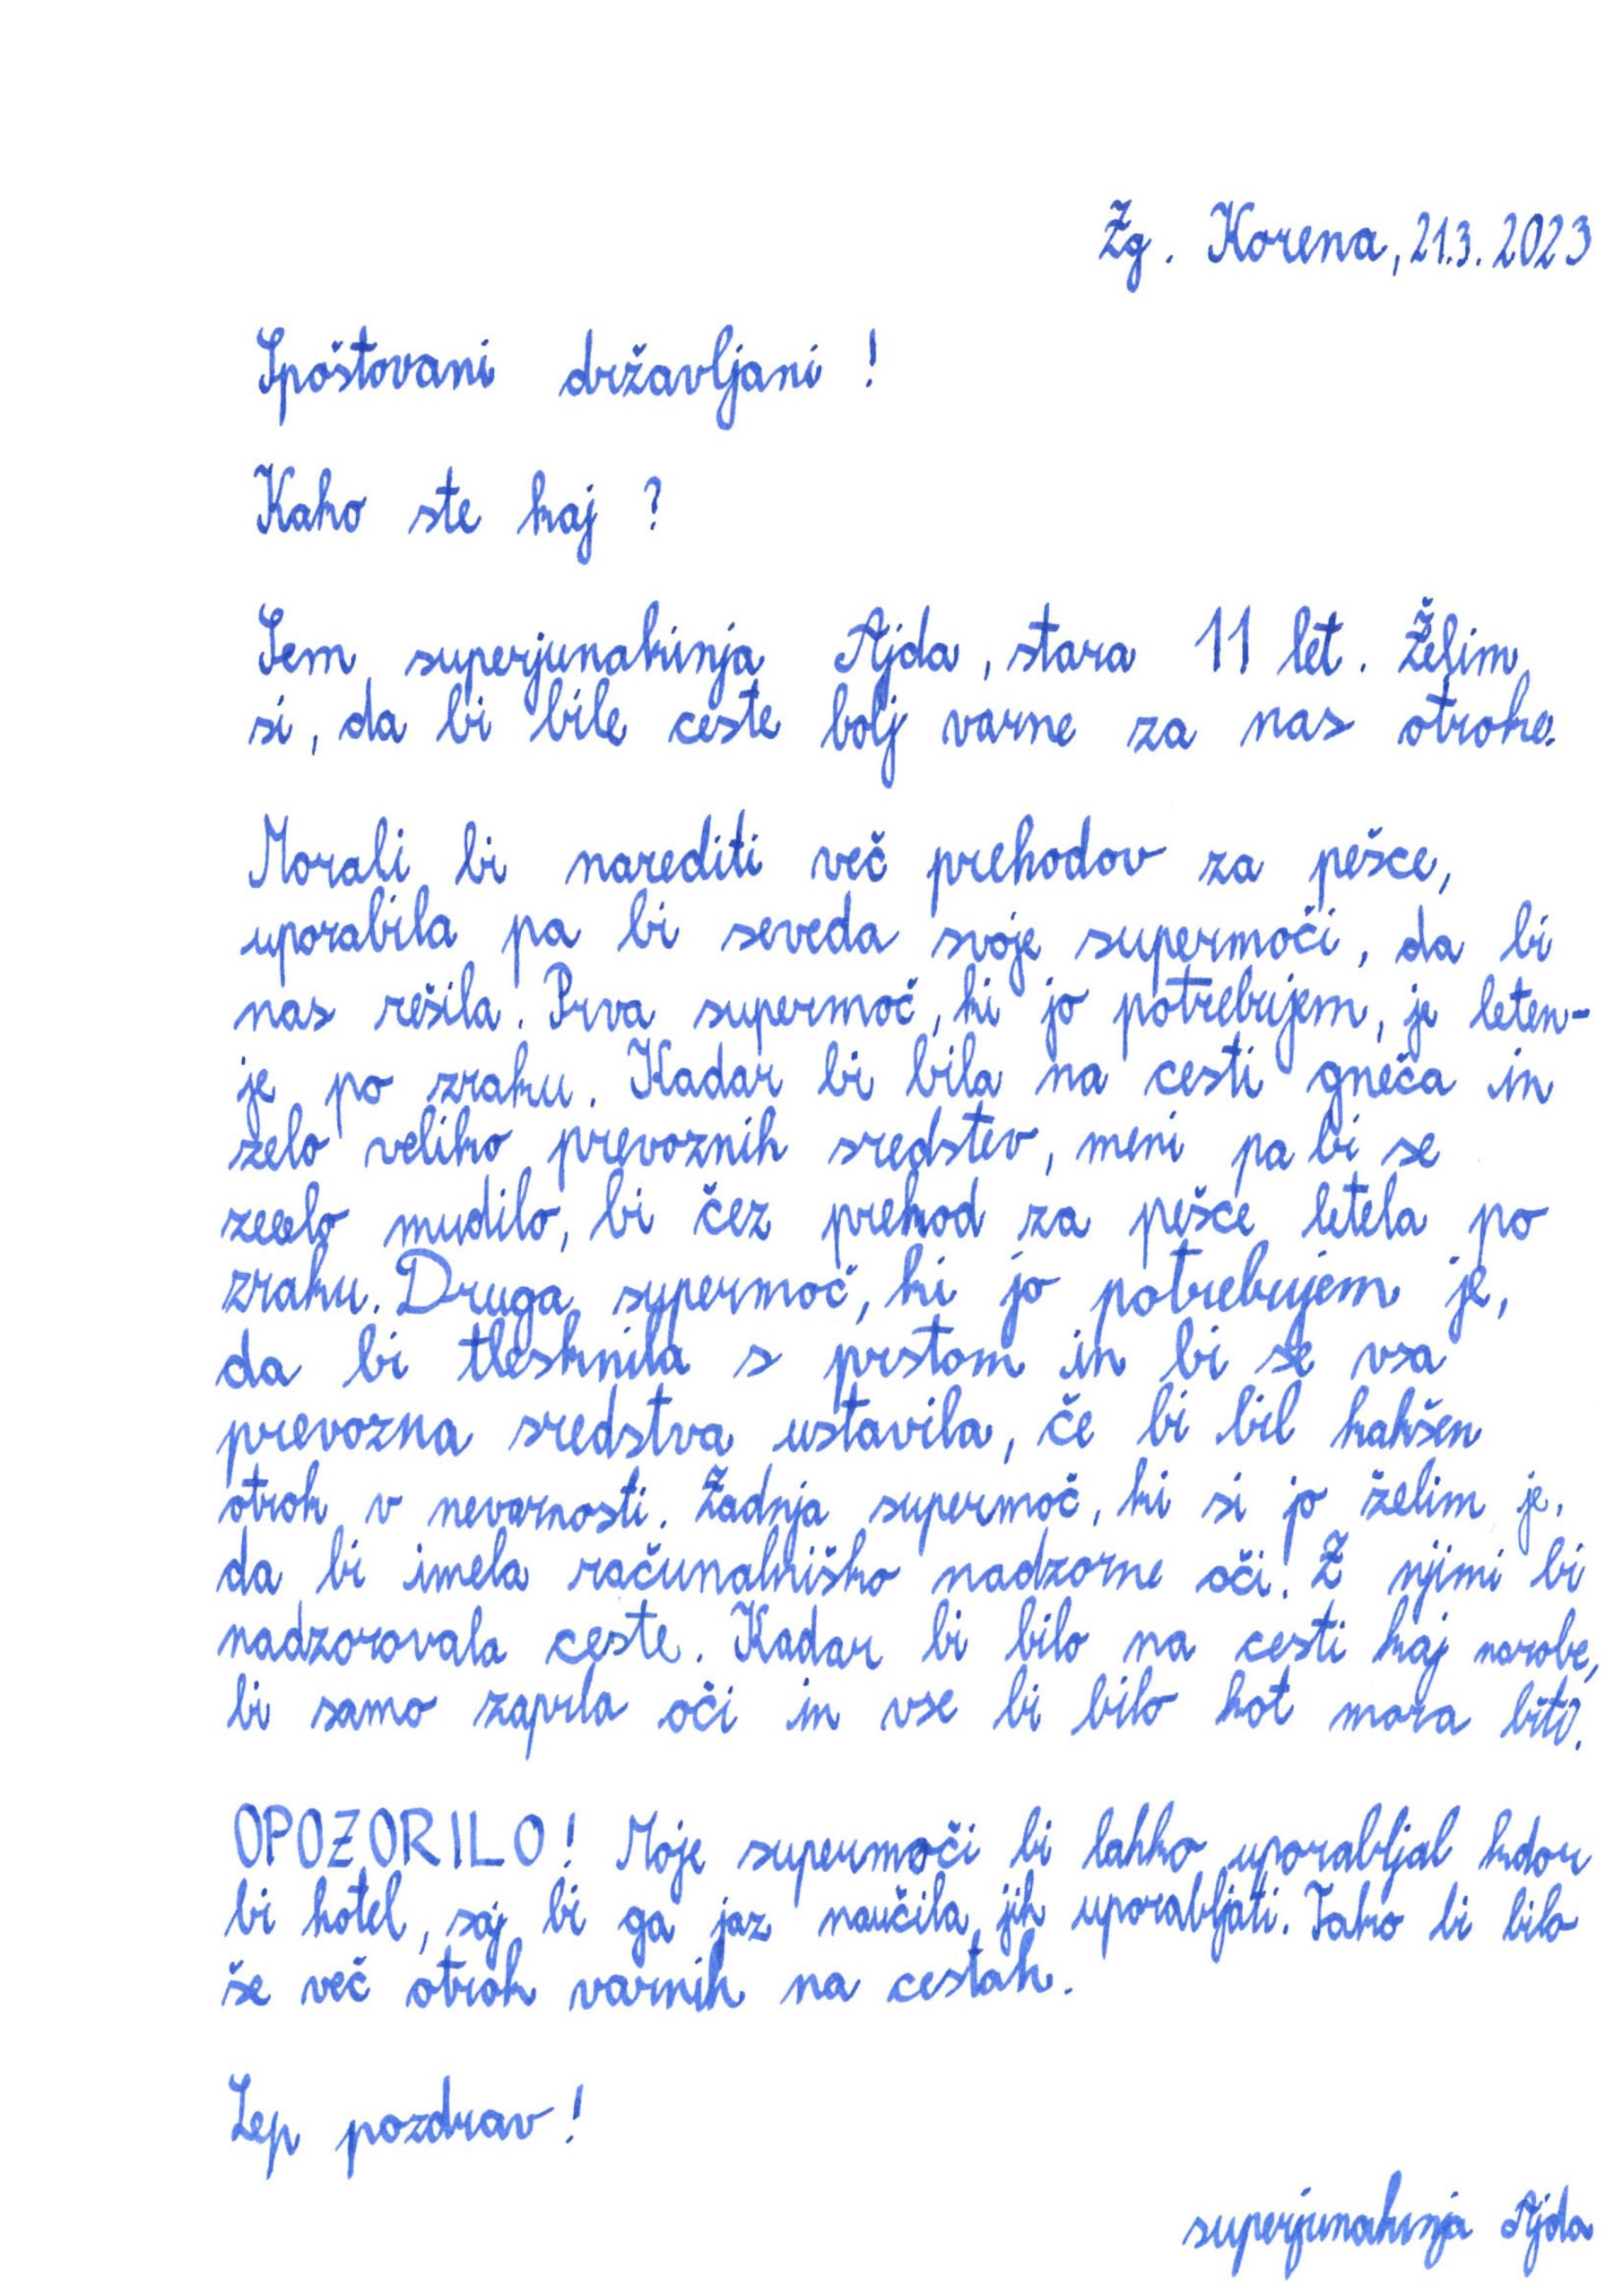 Zg. Korena, 21.3.2023
Spoštovani državljani!
Kako ste kaj?
Sem superjunakinja Ajda, stara 11 let. Želim
si, da bi bile ceste bolj varne za nas otroke.
Morali bi narediti več prehodov za pešce,
uporabila pa bi seveda svoje supermoči, da bi
nas rešila. Prva supermoč, ki jo potrebujem, je leten-
je po zraku. Kadar bi bila na cesti gneča in
zelo veliko prevoznih sredstev, meni pa bi se
zeeelo mudilo, bi čez prehod za pešce letela po
zraku. Druga supermoč, ki jo potrebujem je,
da bi tlesknila s prstom in bi se vsa
prevozna sredstva ustavila, če bi bil kakšen
otrok v nevarnosti. Zadnja supermoč, ki si jo želim je,
da bi imela računalniško nadzorne oči. Z njimi bi
nadzorovala ceste. Kadar bi bilo na cesti kaj narobe,
bi samo zaprla oči in vse bi bilo kot mora biti.
OPOZORILO! Moje supermoči bi lahko uporabljal kdor
bi hotel, saj bi ga jaz naučila jih uporabljati. Tako bi bilo
še več otrok varnih na cestah.
Lep pozdrav!
superjunakinja Ajda